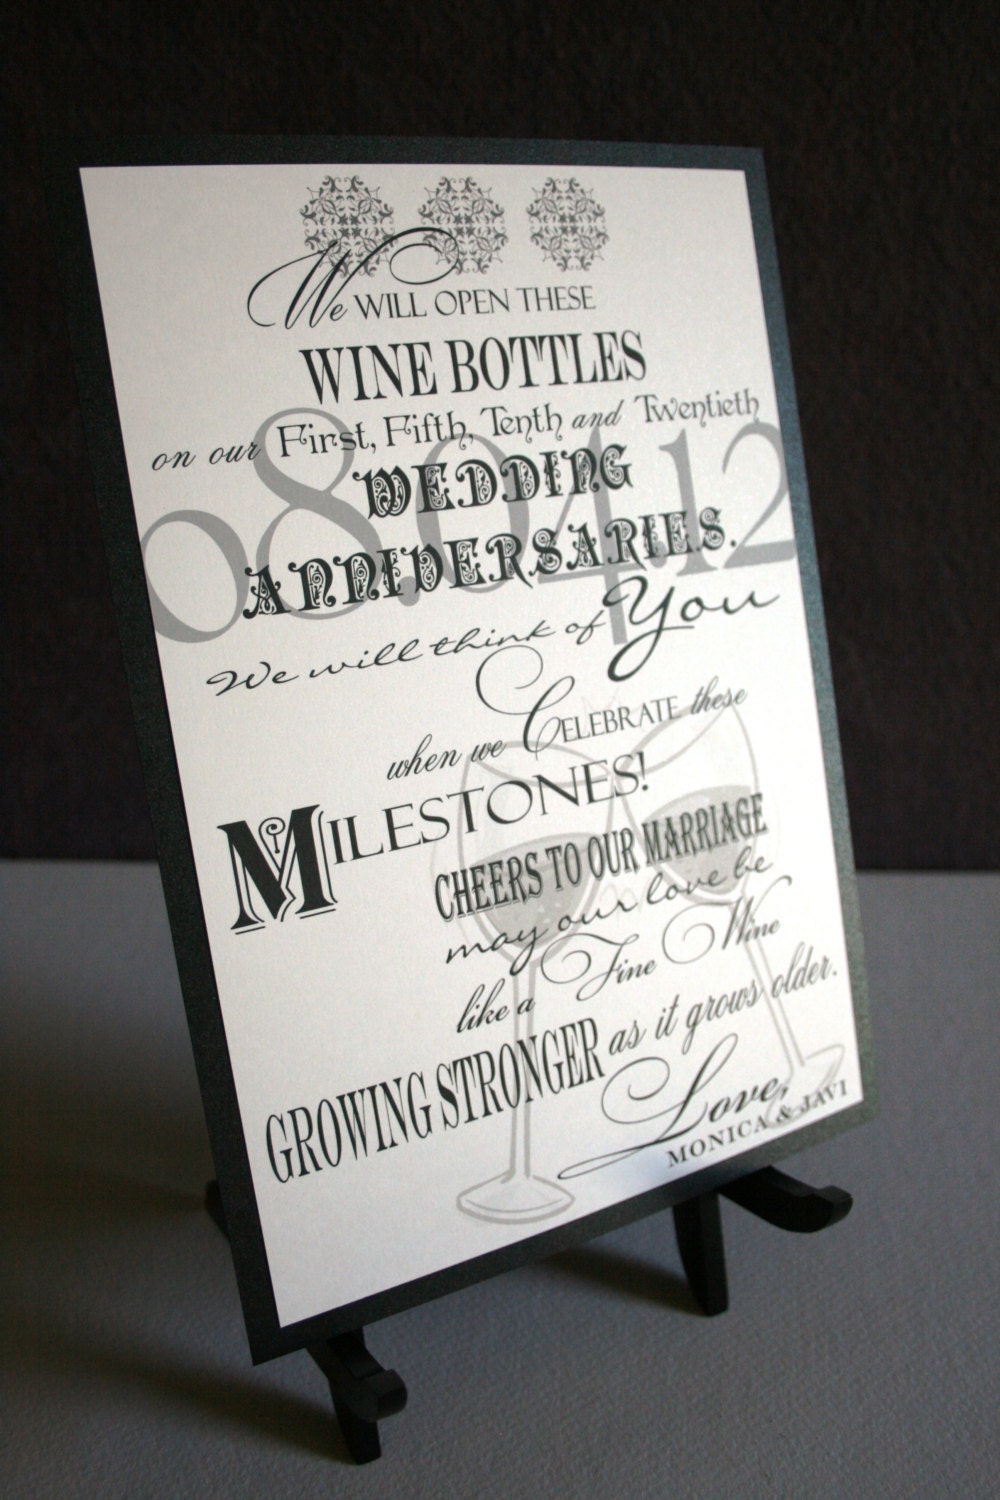 We WILL OPEN THESE
WINE BOTTLES
on our First, Fifth, Tenth and Twentieth
08.04.12
WEDDING
ANNIVERSARIES.
We will think of You
when we CELEBRATE these
MILESTONES!
CHEERS TO OUR MARRIAGE
may our love be
like a Fine Wine
GROWING STRONGER as it grows older.
Love,
MONICA & JAVI